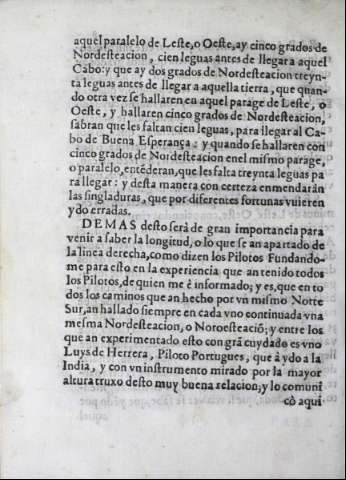 aquel paralelo de Leste, o Oeste, ay cinco grados de
Nordesteacion, cien leguas antes de llegar a aquel
Cabo: y que ay dos grados de Nordesteacion treyn-
ta leguas antes de llegar a aquella tierra, que quan-
do otra vez se hallaren en aquel parage de Leste, o
Oeste, y hallaren cinco grados de Nordesteacion,
sabran que les faltan cien leguas, para llegar al Ca-
bo de Buena Esperança: y quando se hallaren con
cinco grados de Nordesteacion enel mismo parage,
o paralelo, entẽderan, que les falta treynta leguas pa
ra llegar: y desta manera con certeza enmendarán
las singladuras, que por diferentes fortunas vuieren
ydo erradas.
DEMAS desto será de gran importancia para
venir a saber la longitud, o lo que se an apartado de
la linea derecha, como dizen los Pilotos Fundando-
me para esto en la experiencia que an tenido todos
los Pilotos, de quien me è informado; y es, que en to
dos los caminos que an hecho por vn mismo Norte
Sur, an hallado siempre en cada vno continuada vna
mesma Nordesteacion, o Noroesteaciõ; y entre los
que an experimentado esto con grã cuydado es vno
Luys de Herrera, Piloto Portugues, que à ydo a la
India, y con vn instrumento mirado por la mayor
altura truxo desto muy buena relacion; y lo comuni
cò aqui